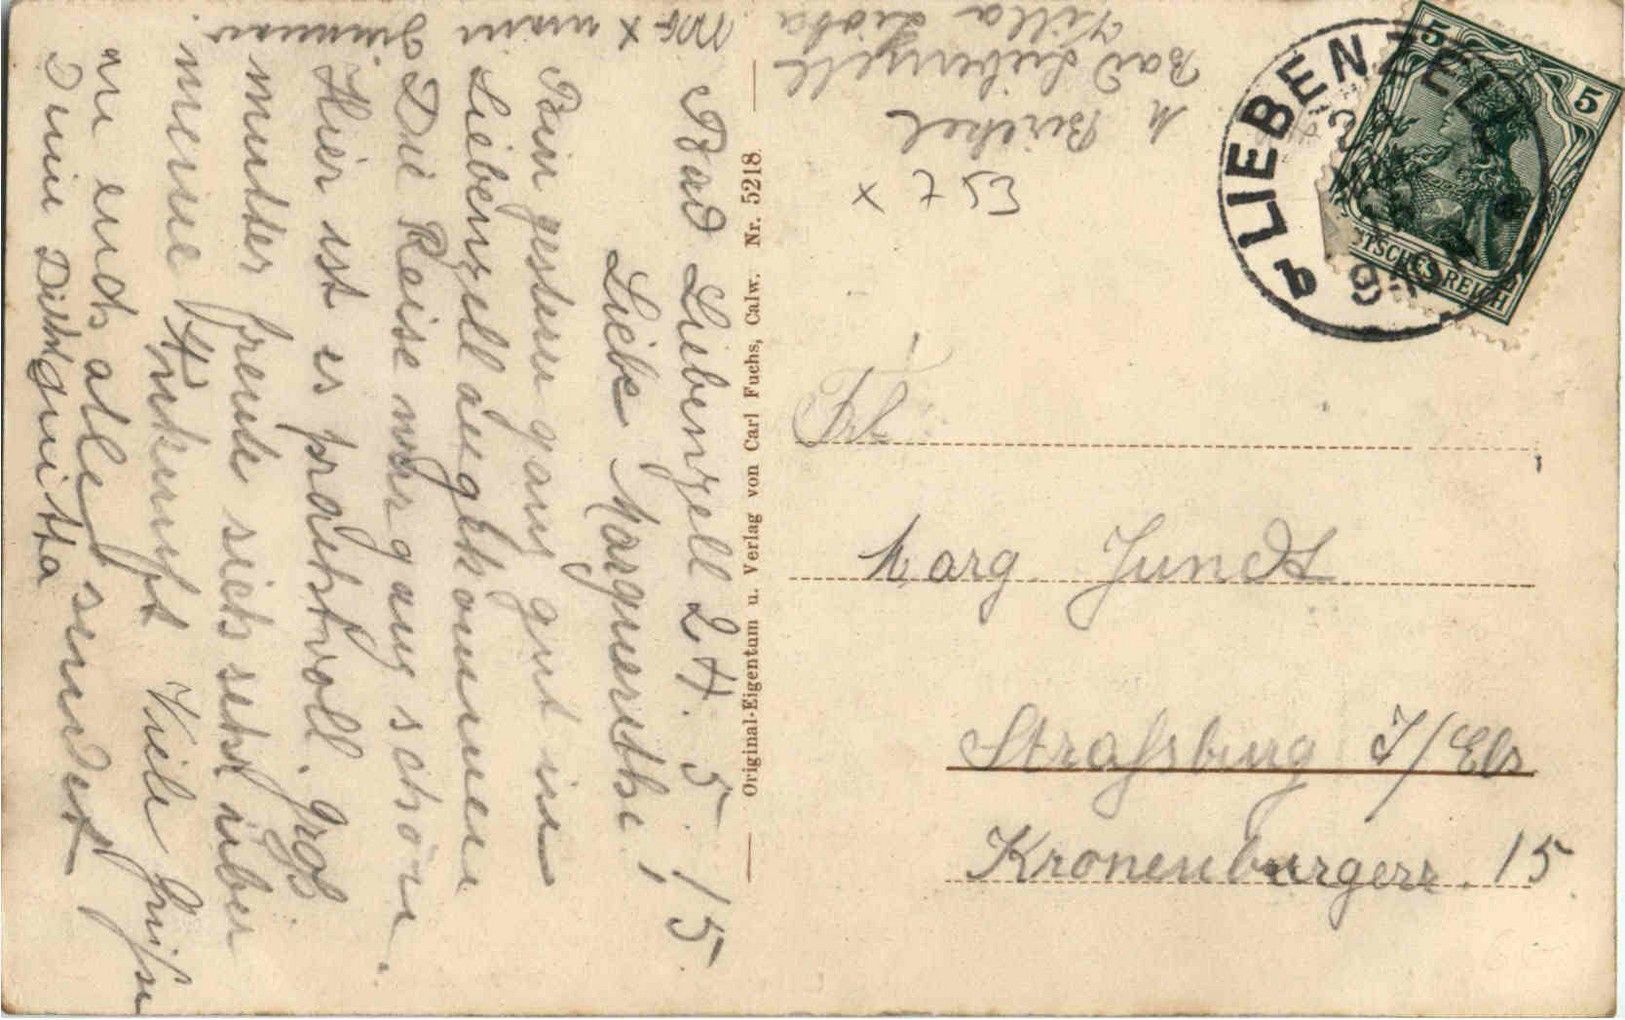 Bad Liebenzell 24. 5. 15
Liebe Marguerithe!
Bin gestern ganz gut in
Liebenzell angekommen
Die Reise war ganz schön.
Hier ist es prachtvoll. Groß
mutter freute sich sehr über
meine Ankunft Viele Grüße
an euch alle sendet
Deine
x mein Zimmer
Original-Eigentum u. Verlag von Carl Fuchs, Calw. Nr. 5218.
Bad Liebenzell
Villa Lioba
x 753
LIEBENZELL
5
5
DEUTSCHES REICH
Frl.
Marg. Jundt
Straßburg I/Els
Kronenburgerr. 15